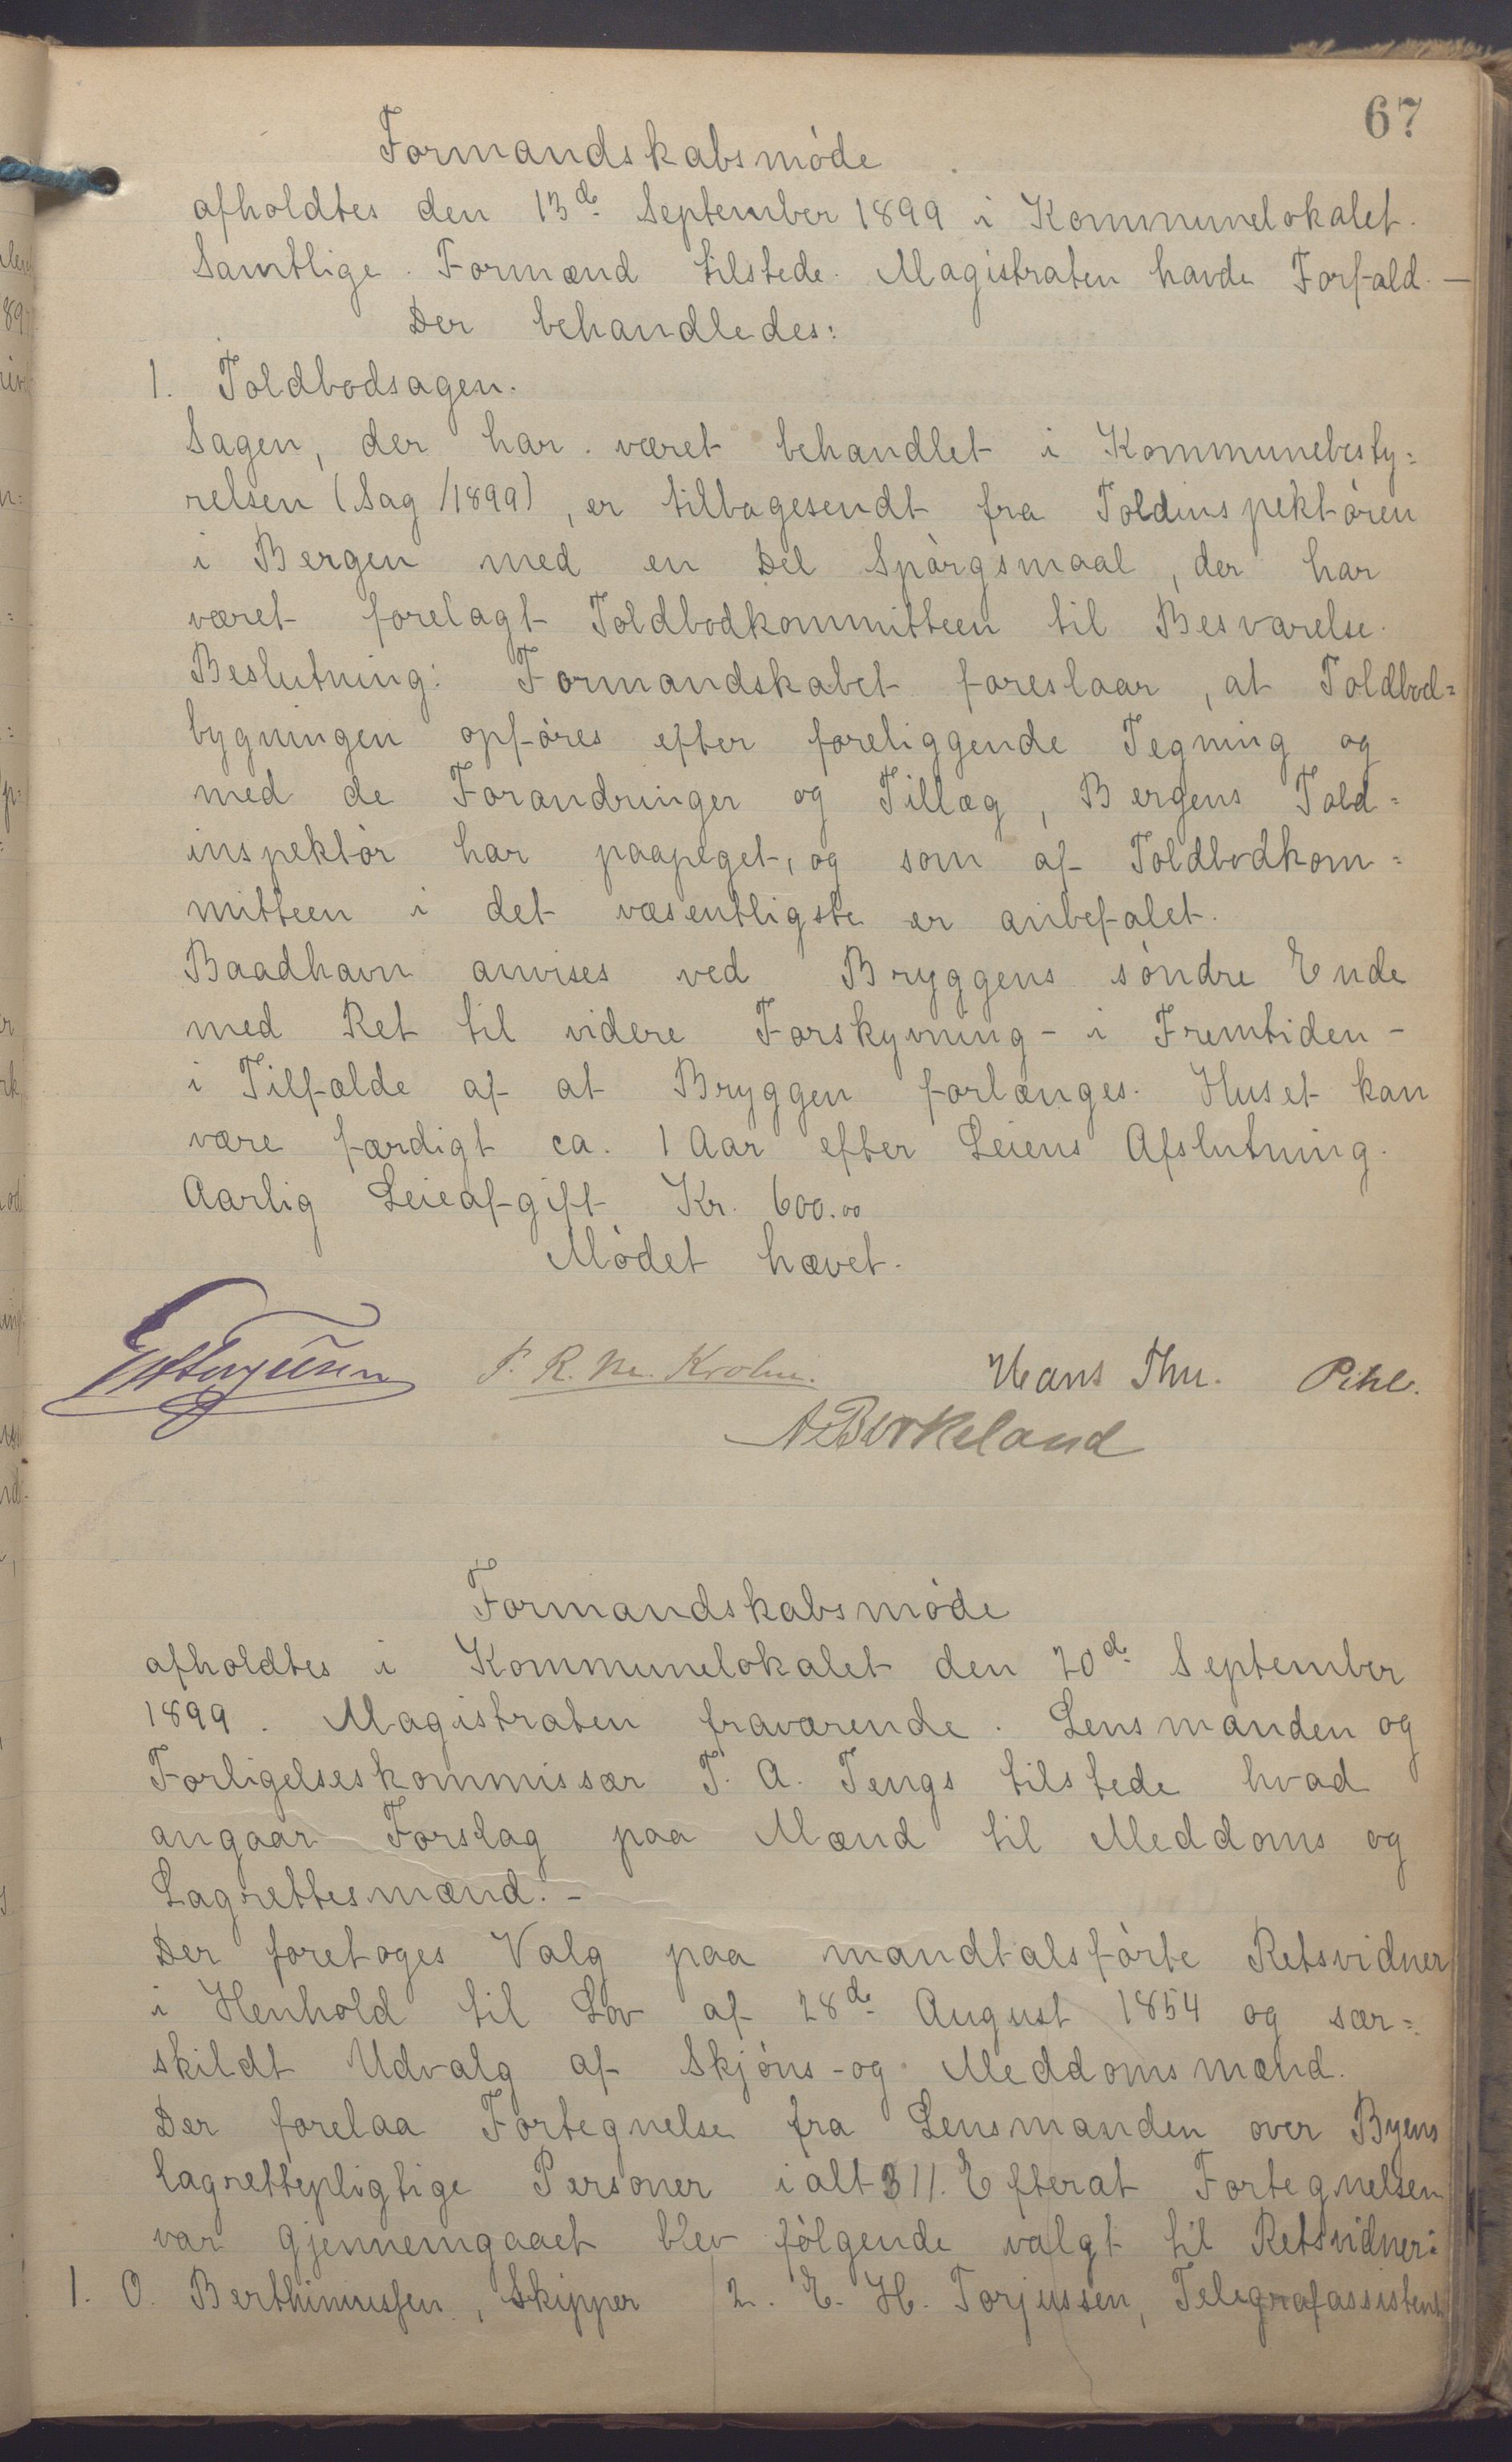 67
Formandskabsmöde
afholdtes den 13de September 1899 i Kommunelokalet.
Samtlige Formænd tilstede. Magistraten havde Forfald. —
Der behandledes:
1. Toldbodsagen.
Sagen, der har været behandlet i Kommunebesty=
relsen (Sag /1899), er tilbagesendt fra Toldinspektören
i Bergen med en Del Spörgsmaal, der har
været forelagt Toldbodkommitteen til Besvarelse.
Beslutning: Formandskabet foreslaar, at Toldbod=
bygningen opföres efter foreliggende Tegning og
med de Forandringer og Tillæg, Bergens Told=
inspektör har paapeget, og som af Toldbodkom=
mitteen i det væsentligste er anbefalet.
Baadhavn anvises ved Bryggens söndre Ende
med Ret til videre Forskyvning - i Fremtiden -
i Tilfælde af at Bryggen forlænges. Huset kan
være færdigt ca. 1 Aar efter Leiens Afslutning.
Aarlig Leieafgift Kr. 600.00
Mödet hævet.
P. R. M. Krohn. Hans Thu. Pihl.
A Birkeland
Formandskabsmöde
afholdtes i Kommunelokalet den 20de September
1899. Magistraten fraværende. Lensmanden og
Forligelseskommissær T. A. Tengs tilstede hvad
angaar Forslag paa Mænd til Meddoms og
Lagrettesmænd. -
Der foretoges Valg paa mandtalsförte Retsvidner
i Henhold til Lov af 28de August 1854 og sær=
skildt Udvalg af Skjöns- og Meddomsmænd.
Der forelaa Fortegnelse fra Lensmanden over Byens
lagrettepligtige Personer ialt 311. Efterat Fortegnelsen
var gjennemgaaet blev fölgende valgt til Retsvidner:
1. O. Berthinussen, Skipper 2. E. H. Torjussen, Telegrafassistent